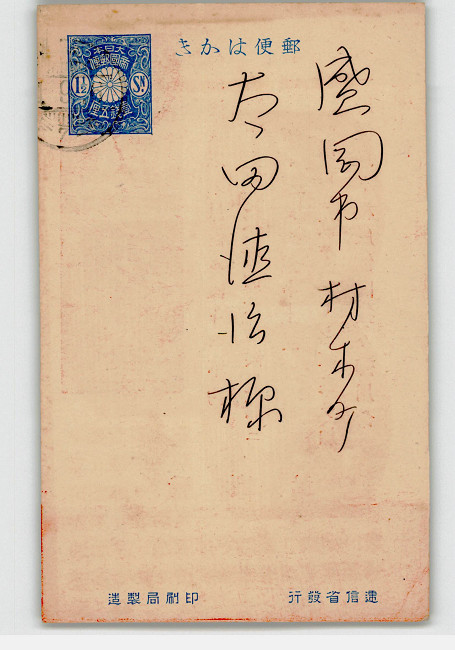 郵便はかき
大日本
帝國郵便
1½ Sn.
壹銭五厘
盛岡市材木町
太田達治様
逓信省發行
印刷局製造